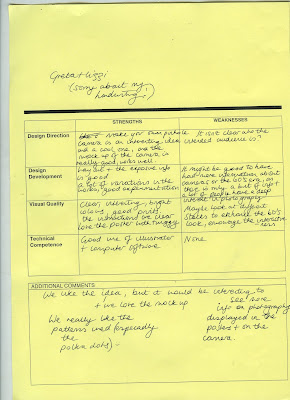 Greta + Lizzi
(sorry about my
handwriting!)
STRENGTHS
WEAKNESSES
Design Direction
make your own pinhole
camera is an interesting idea
and a cool one, and the
mock up of the camera is
really good, works well.
It isnt clear who the
intended audience is?
Design
Development
is good
a lot of variations in the
work, good experimentation
It might be good to have
had more information about
cameras or the 60's era, as
this is only a bit of info +
a lot of people have a deep
interest in photography.
Visual Quality
Clear, interesting, bright
colours, good
the instructions are clear
love the poster with twiggy
Maybe look at different
to enhance the 60's
look, envisage the
Technical
Competence
Good use of illustrator
+ computer
None.
ADDITIONAL COMMENTS
We like the idea, but it would be interesting to
+ we love the mock up
see more
info on photography
displayed in the
poster + on the
camera.
We really like the
patterns used (especially
the
polka dots) -